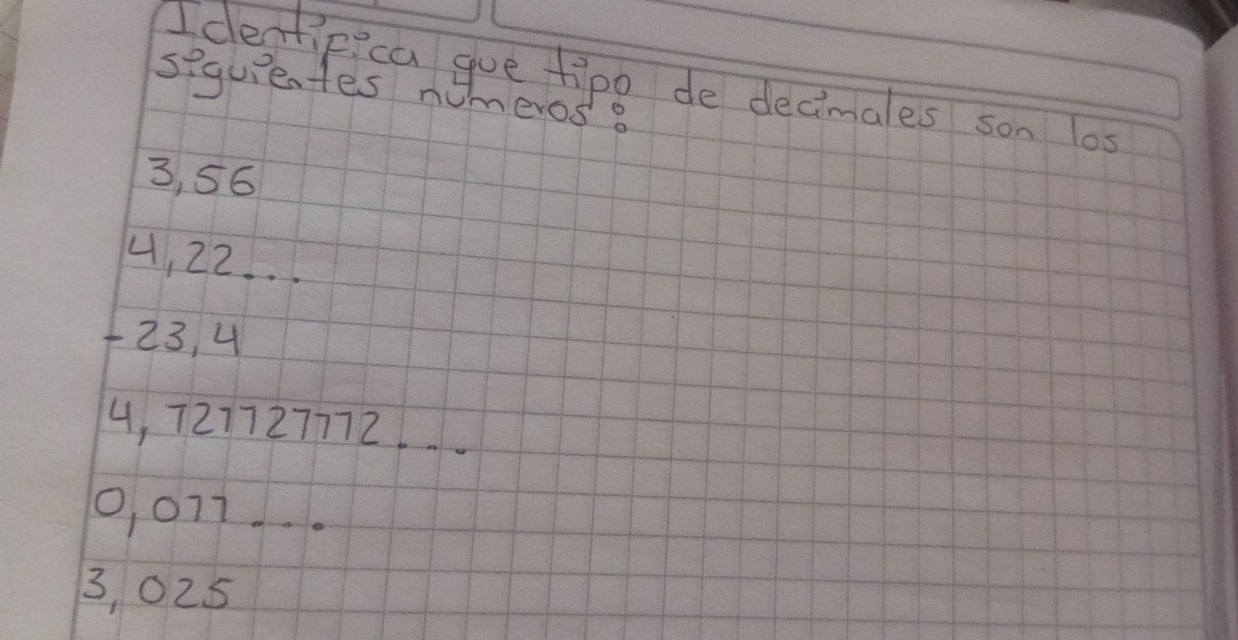 Identifica que tipo de decimales son los
siguientes numeros:
3,56
4,22...
-23,4
4,727727772...
0,077...
3,025